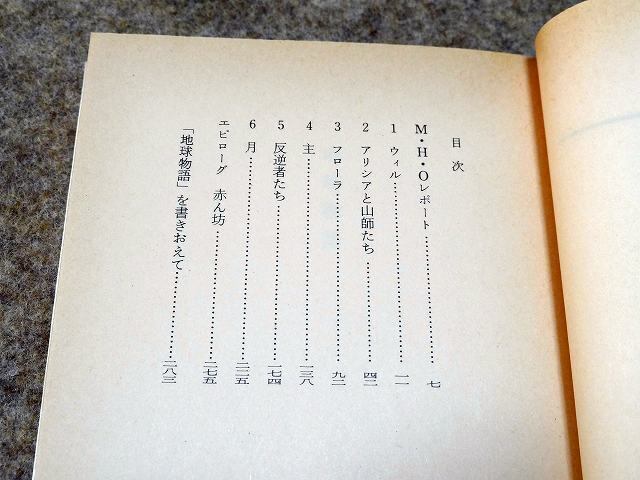 目次
M・H・Oレポート……………………七
1 ウィル……………………一一
2 アリシアと山師たち……………………四二
3 フローラ……………………九二
4 主……………………一三八
5 反逆者たち……………………一七四
6 月……………………二二五
エピローグ 赤ん坊……………………二七五
「地球物語」を書きおえて……………………二八三